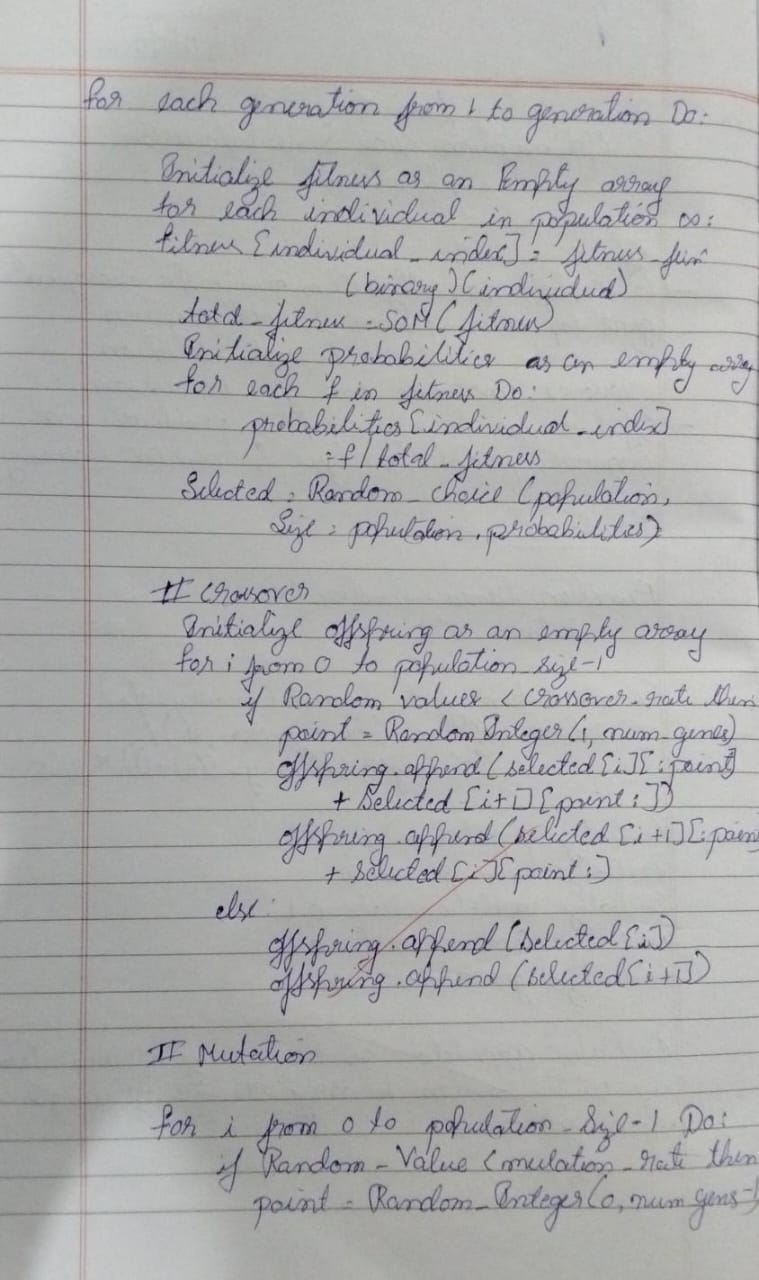 for each generation from 1 to generation Do:
Initialize fitness as an Empty array
for each individual in population Do:
fitness [individual_index] = fitness_fun
(binary)(individual)
total_fitness = SUM(fitness)
Initialize probabilities as an empty array
for each f in fitness Do:
probabilities [individual_index]
= f / total_fitness
Selected = Random_choice (population,
Size = population, probabilities)
# Crossover
Initialize offspring as an empty array
for i from 0 to population_size-1
if Random values < crossover_rate then
point = Random Integer (1, num_genes)
offspring.append (selected [i][:point]
+ Selected [i+1][point:])
offspring.append (selected [i+1][:point
+ Selected [i][point:]
else:
offspring.append (selected[i])
offspring.append (selected[i+1])
# Mutation
for i from 0 to population_Size-1 Do:
if Random_Value < mutation_rate then
point = Random_Integer (0, num gens-1